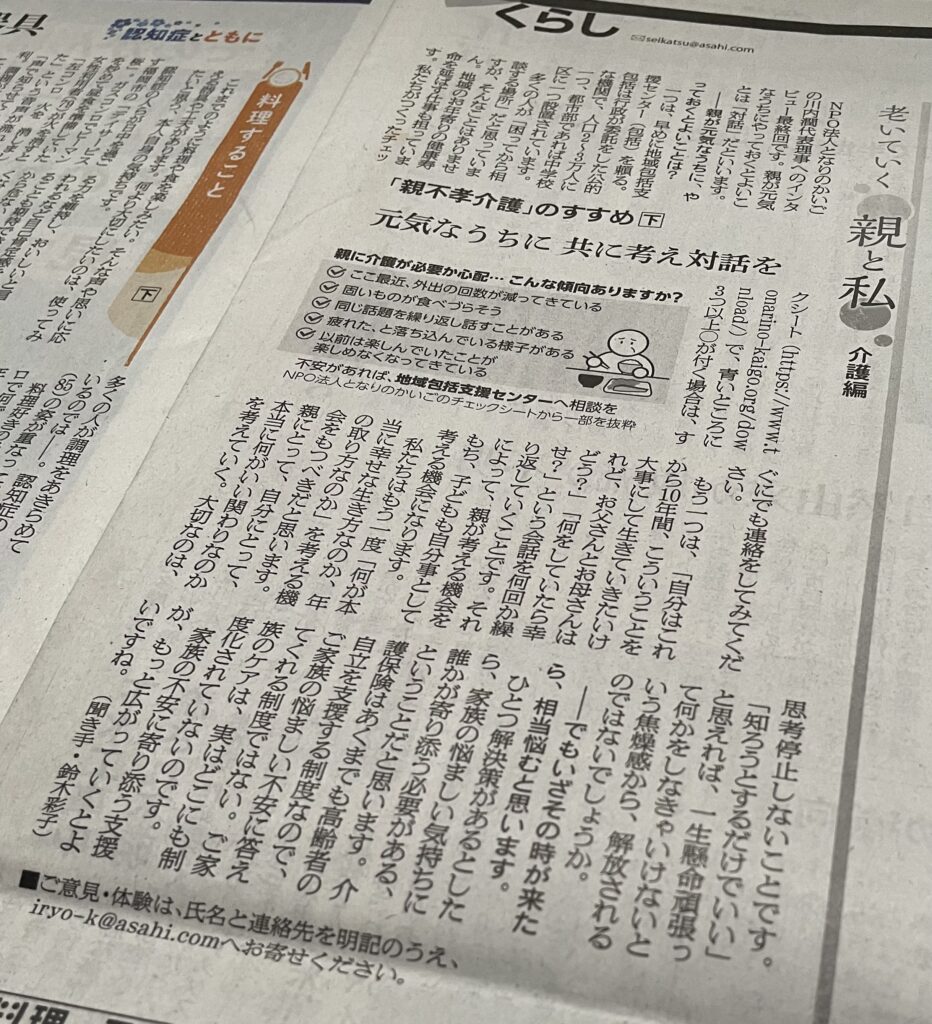 くらし
✉seikatsu@asahi.com
老いていく 親と私 介護編
「親不孝介護」のすすめ 下
元気なうちに 共に考え対話を
NPO法人となりのかいご
の川内潤代表理事へのインタ
ビュー最終回です。親が元気
なうちにやっておくとよいこ
とは「対話」だといいます。
――親が元気なうちに、や
っておくとよいことは？
一つは、早めに地域包括支
援センター（包括）を頼る。
包括は行政が委託をした公的
な機関で、人口2〜3万人に
一つ、都市部であれば中学校
区に一つ設置されています。
多くの人が「困ってから相
談する場所」だと思っていま
すが、そんなことはありませ
ん。地域のお年寄りの健康寿
命を延ばす仕事も担っていま
す。
私たちがつくったチェッ
クシート（https://www.t
onarino-kaigo.org/dow
nload/）で、青いところに
3つ以上〇が付く場合は、す
ぐにでも連絡をしてみてくだ
さい。
もう一つは、「自分はこれ
から10年間、こういうことを
大事にして生きていきたいけ
れど、お父さんとお母さんは
どう？」「何をしていたら幸
せ？」という会話を何回か繰
り返していくことです。それ
によって、親が考える機会を
もち、子どもも自分事として
考える機会になります。
私たちはもう一度「何が本
当に幸せな生き方なのか、年
の取り方なのか」を考える機
会をもつべきだと思います。
親にとって、自分にとって、
本当に何がいい関わりなのか
を考えていく。大切なのは、
思考停止しないことです。
「知ろうとするだけでいい」
と思えれば、一生懸命頑張っ
て何かをしなきゃいけないと
いう焦燥感から、解放される
のではないでしょうか。
――でもいざその時が来た
ら、相当悩むと思います。
ひとつ解決策があるとした
ら、家族の悩ましい気持ちに
誰かが寄り添う必要がある、
ということだと思います。介
護保険はあくまでも高齢者の
自立を支援する制度なので、
ご家族の悩ましい不安に答え
てくれる制度ではない。ご家
族のケアは、実はどこにも制
度化されていないのです。
家族の不安に寄り添う支援
が、もっと広がっていくとよ
いですね。
（聞き手・鈴木彩子）
親に介護が必要か心配… こんな傾向ありますか？
ここ最近、外出の回数が減ってきている
固いものが食べづらそう
同じ話題を繰り返し話すことがある
疲れた、と落ち込んでいる様子がある
以前は楽しんでいたことが
楽しめなくなってきている
不安があれば、地域包括支援センターへ相談を
NPO法人となりのかいごのチェックシートから一部を抜粋
■ご意見・体験は、氏名と連絡先を明記のうえ、
iryo-k@asahi.comへお寄せください。
認知症とともに
料理すること
下
多くの人が調理をあきらめて
いるのでは――。
料理